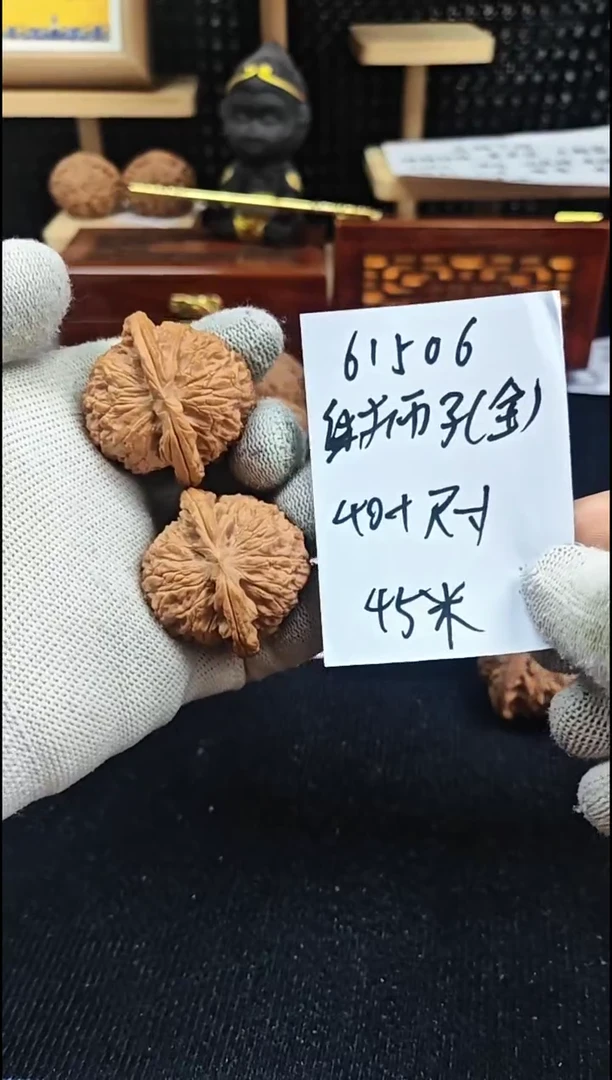 61506
狮子(金)
40+尺寸
45米